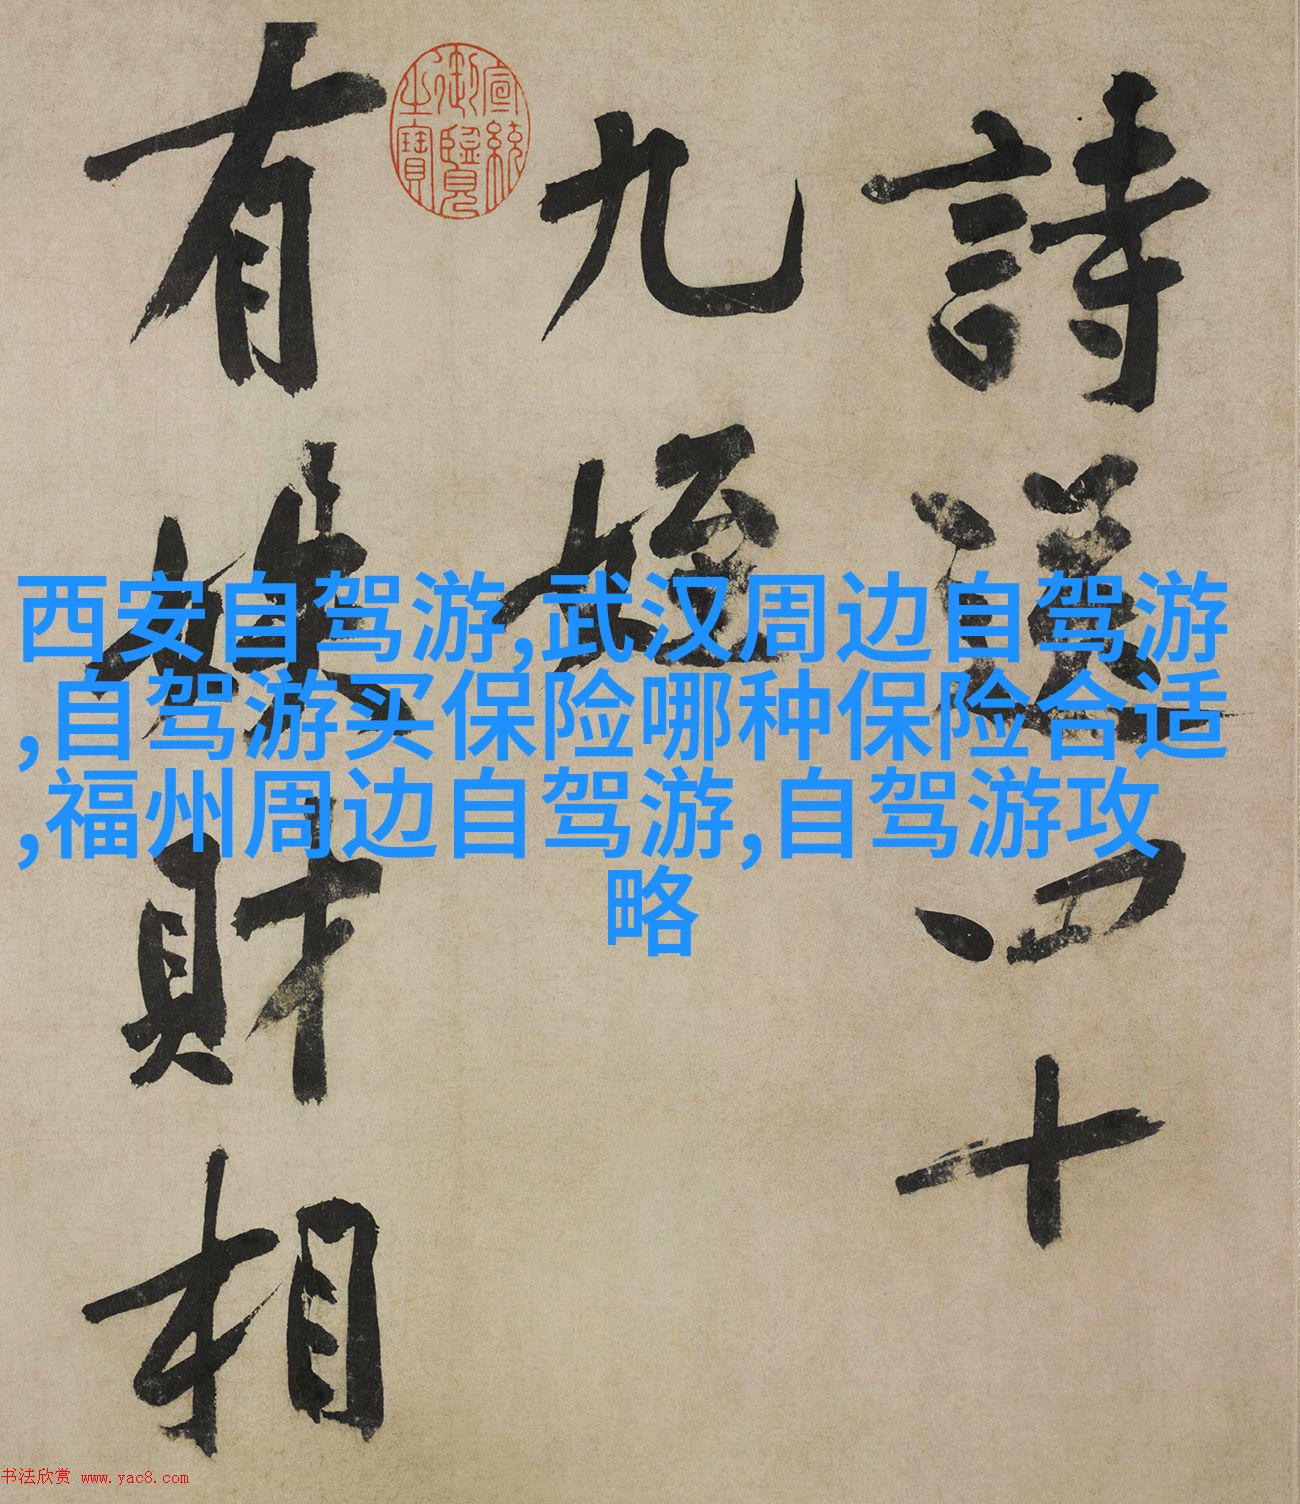 詩送四十
九姪
有懷財相
宣統
御覽
之寶
西安自驾游,武汉周边自驾游
,自驾游买保险哪种保险合适
,福州周边自驾游,自驾游攻
略
书法欣赏 www.yac8.com